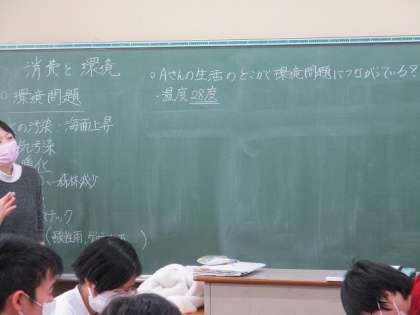 消費と環境
○環境問題
の汚染・海面上昇
気汚染
化
森林減少
チック
(酸性雨,
○Aさんの生活のどこが環境問題につながっている?
・温度28度